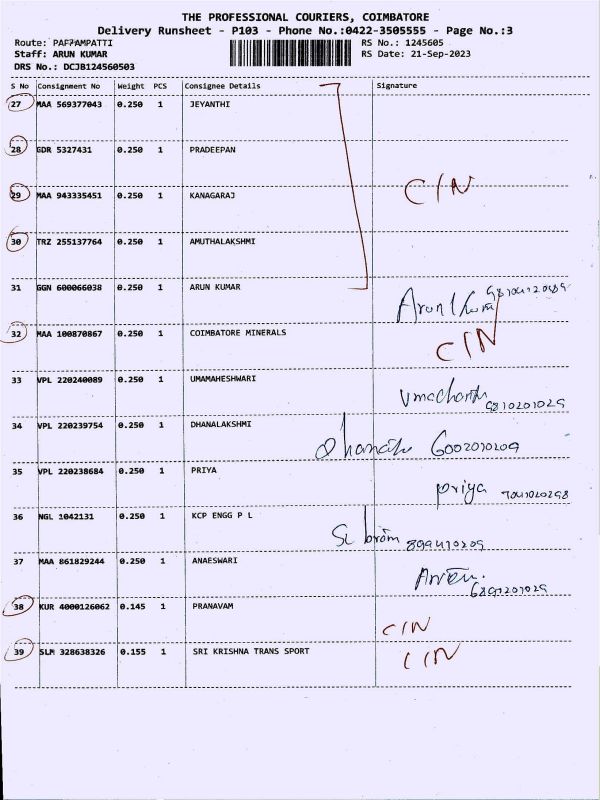 THE PROFESSIONAL COURIERS, COIMBATORE
Delivery Runsheet - P103 - Phone No.:0422-3505555 - Page No.:3
Route: PAPPAMPATTI RS No.: 1245605
Staff: ARUN KUMAR RS Date: 21-Sep-2023
DRS No.: DCJB124560503
S No Consignment No Weight PCS Consignee Details Signature
27 MAA 569377043 0.250 1 JEYANTHI
28 GDR 5327431 0.250 1 PRADEEPAN
29 MAA 943335451 0.250 1 KANAGARAJ C/N
30 TRZ 255137764 0.250 1 AMUTHALAKSHMI
31 GGN 600066038 0.250 1 ARUN KUMAR
32 MAA 100870867 0.250 1 COIMBATORE MINERALS C/N
33 VPL 220240089 0.250 1 UMAMAHESHWARI 9810201029
34 VPL 220239754 0.250 1 DHANALAKSHMI 6002010209
35 VPL 220238684 0.250 1 PRIYA Priya
36 NGL 1042131 0.250 1 KCP ENGG P L
37 MAA 861829244 0.250 1 ANAESWARI
38 KUR 4000126062 0.145 1 PRANAVAM C/N
39 SLM 328638326 0.155 1 SRI KRISHNA TRANS SPORT C/N